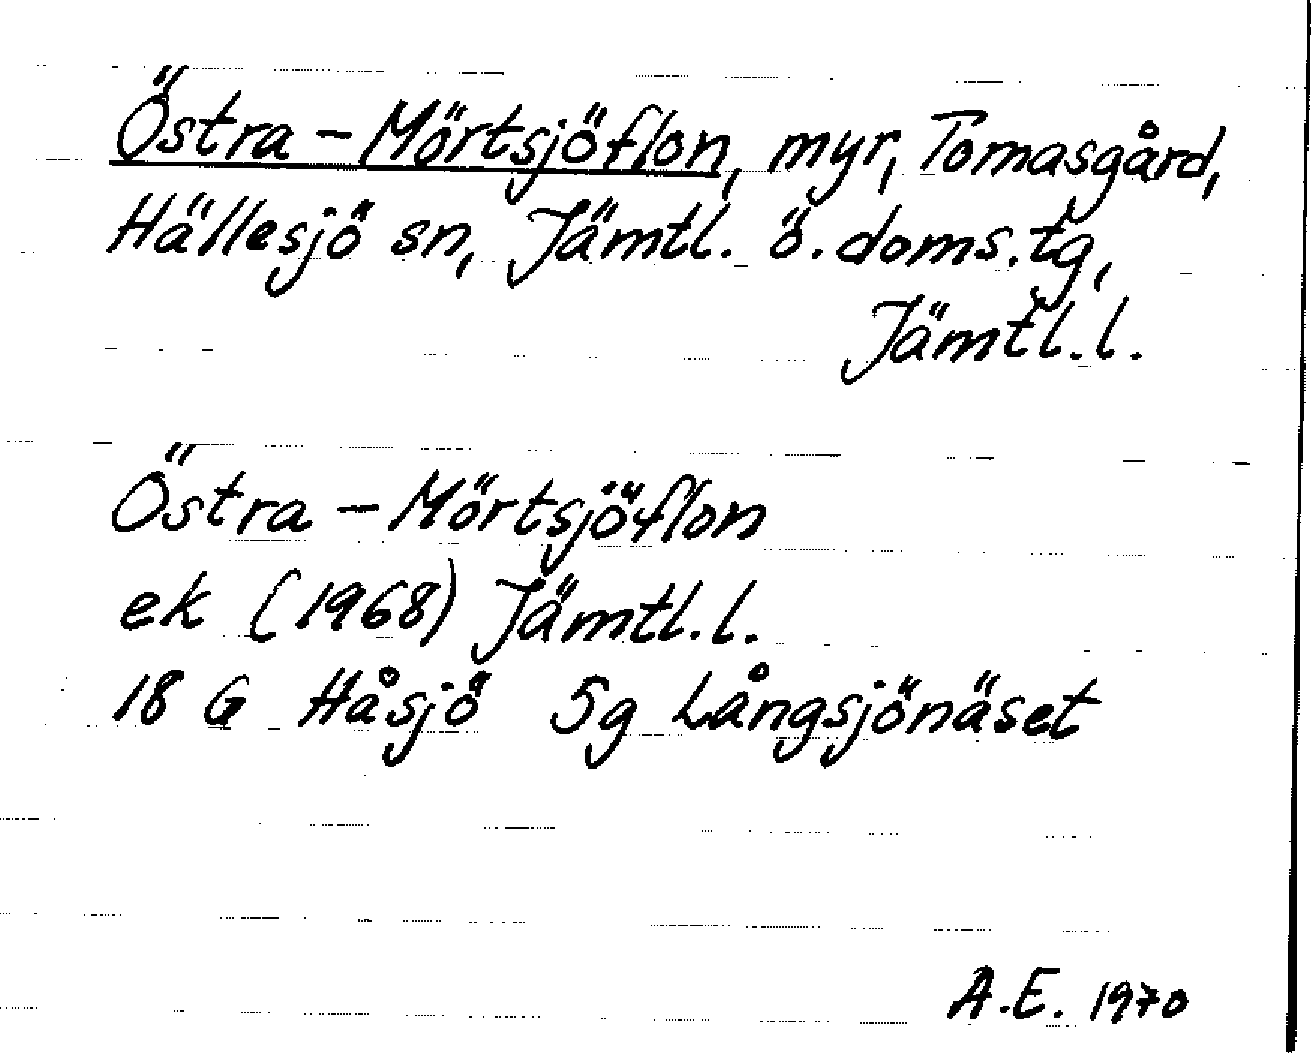 Östra-Mörtsjöflon, myr, Tomasgård,
Hällesjö sn, Jämtl. ö. doms.tg,
Jämtl.l.
Östra-Mörtsjöflon
ek (1968) Jämtl.l.
18 G Håsjö 5g Långsjönäset
A.E. 1970